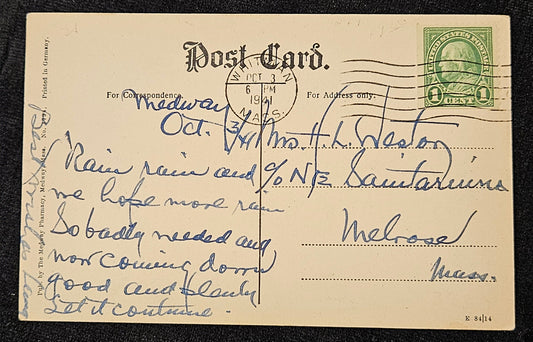 Post Card.
For Correspondence.
For Address only.
OCT 3
6 PM
1941
MASS.
UNITED STATES POSTAGE
1 1
Medway
Oct. 3/41
Rain rain and
we hope more rain
So badly needed and
now coming down
good and plenty
Let it continue.
Mrs. H. L. Weston
c/o N E Sanitarium
Melrose
Mass.
Pub. by The Medway Pharmacy, Medway, Mass. Printed in Germany.
E 84/14